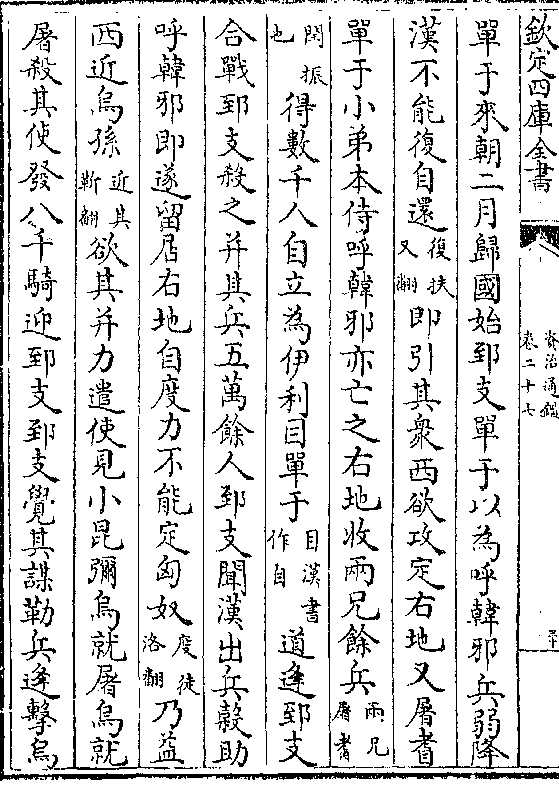 欽定四庫全書
資治通鑑
卷二十七
單于來朝二月歸國始郅支單于以為呼韓邪兵弱降
漢不能復自還復扶又翻即引其衆西欲攻定右地又屠耆
單于小弟本侍呼韓邪亦亡之右地收兩兄餘兵兩兄屠耆
閏振也得數千人自立為伊利目單于目漢書作自道逢郅支
合戰郅支殺之并其兵五萬餘人郅支聞漢出兵穀助
呼韓邪即遂留居右地自度力不能定匈奴度徒洛翻乃益
西近烏孫近其靳翻欲其并力遣使見小昆彌烏就屠烏就
屠殺其使發八千騎迎郅支郅支覺其謀勒兵逢擊烏